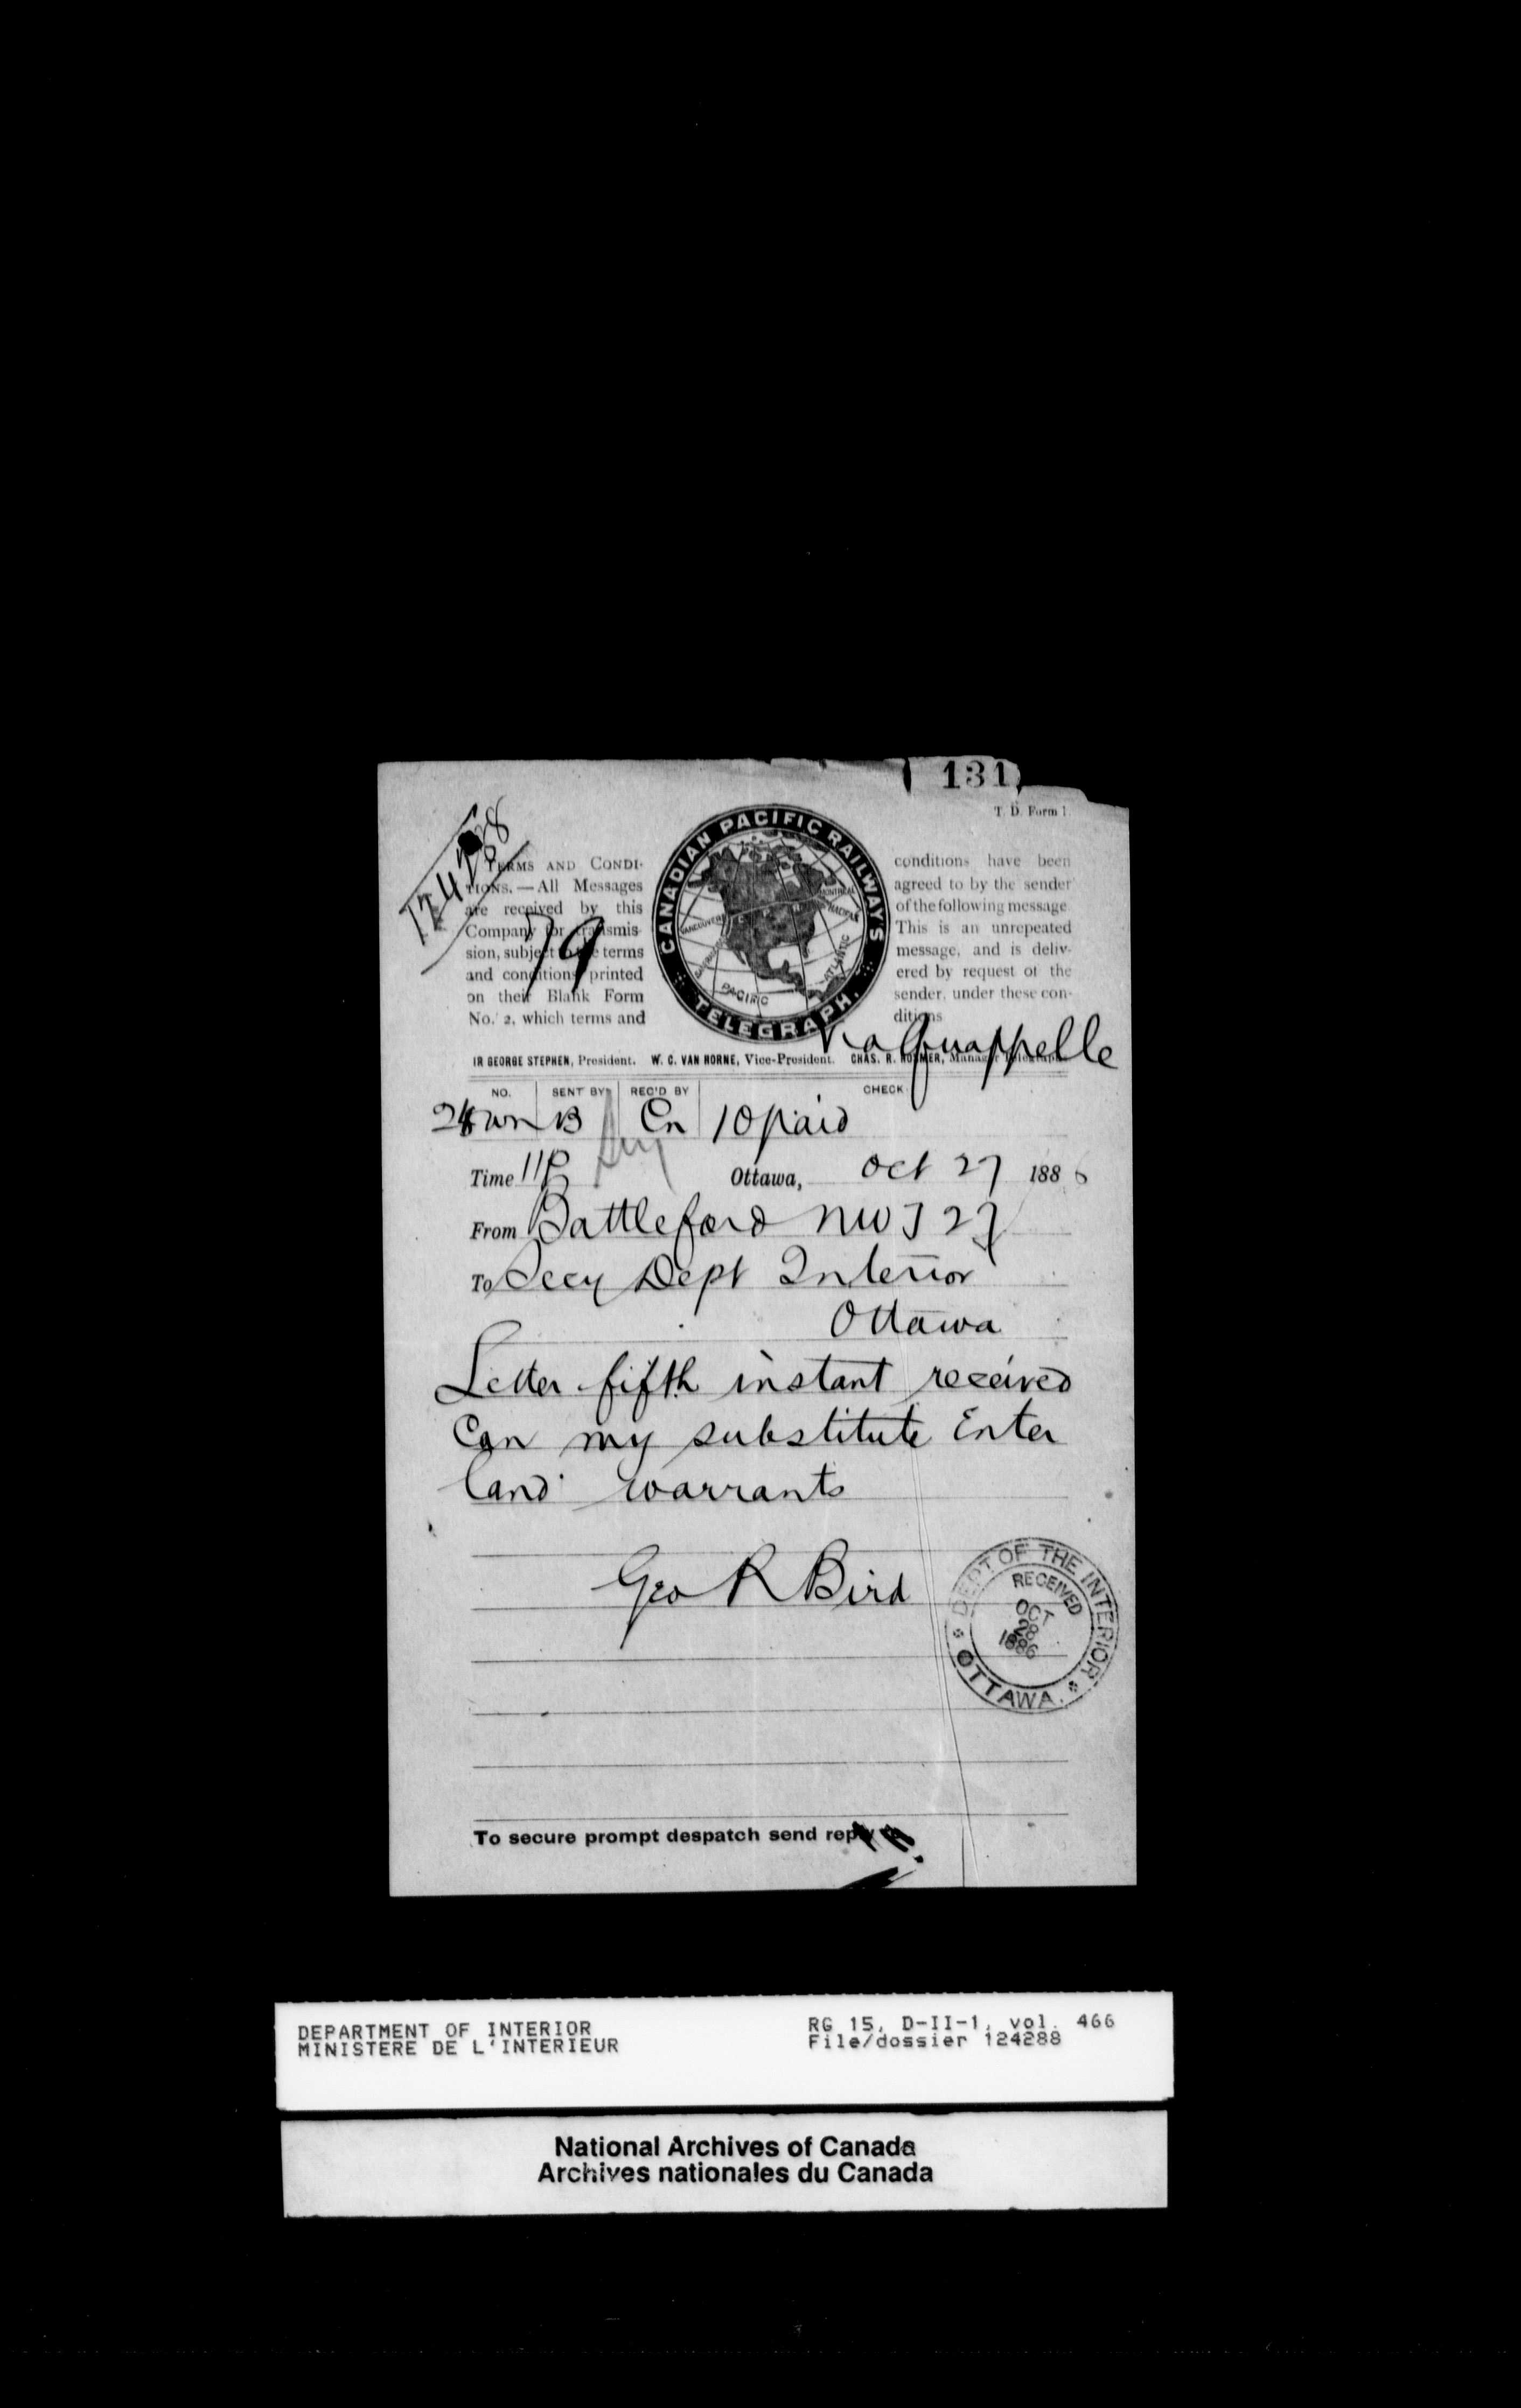 131
T. D. Form 1
124288
79
CANADIAN PACIFIC RAILWAY'S TELEGRAPH.
MONTREAL
HALIFAX
VANCOUVER
C P R
ATLANTIC
PACIFIC
TERMS AND CONDI-
TIONS.—All Messages
are received by this
Company for transmis-
sion, subject to the terms
and conditions printed
on their Blank Form
No. 2, which terms and
conditions have been
agreed to by the sender
of the following message.
This is an unrepeated
message, and is deliv-
ered by request of the
sender, under these con-
ditions
Via Quappelle
IR GEORGE STEPHEN, President. W. C. VAN HORNE, Vice-President. CHAS. R. HOSMER, Manager Telegraph
NO. SENT BY REC'D BY CHECK
B Cn 10 paid
Time 11P Ottawa, Oct 27 1886
From Battleford NWT 27
To Secy Dept Interior
Ottawa
Letter fifth instant received
Can my substitute Enter
land warrants
Geo R Bird
DEPT OF THE INTERIOR
RECEIVED
OCT
28
1886
OTTAWA.
To secure prompt despatch send reply
DEPARTMENT OF INTERIOR
MINISTERE DE L'INTERIEUR
RG 15, D-II-1, vol. 466
File/dossier 124288
National Archives of Canada
Archives nationales du Canada